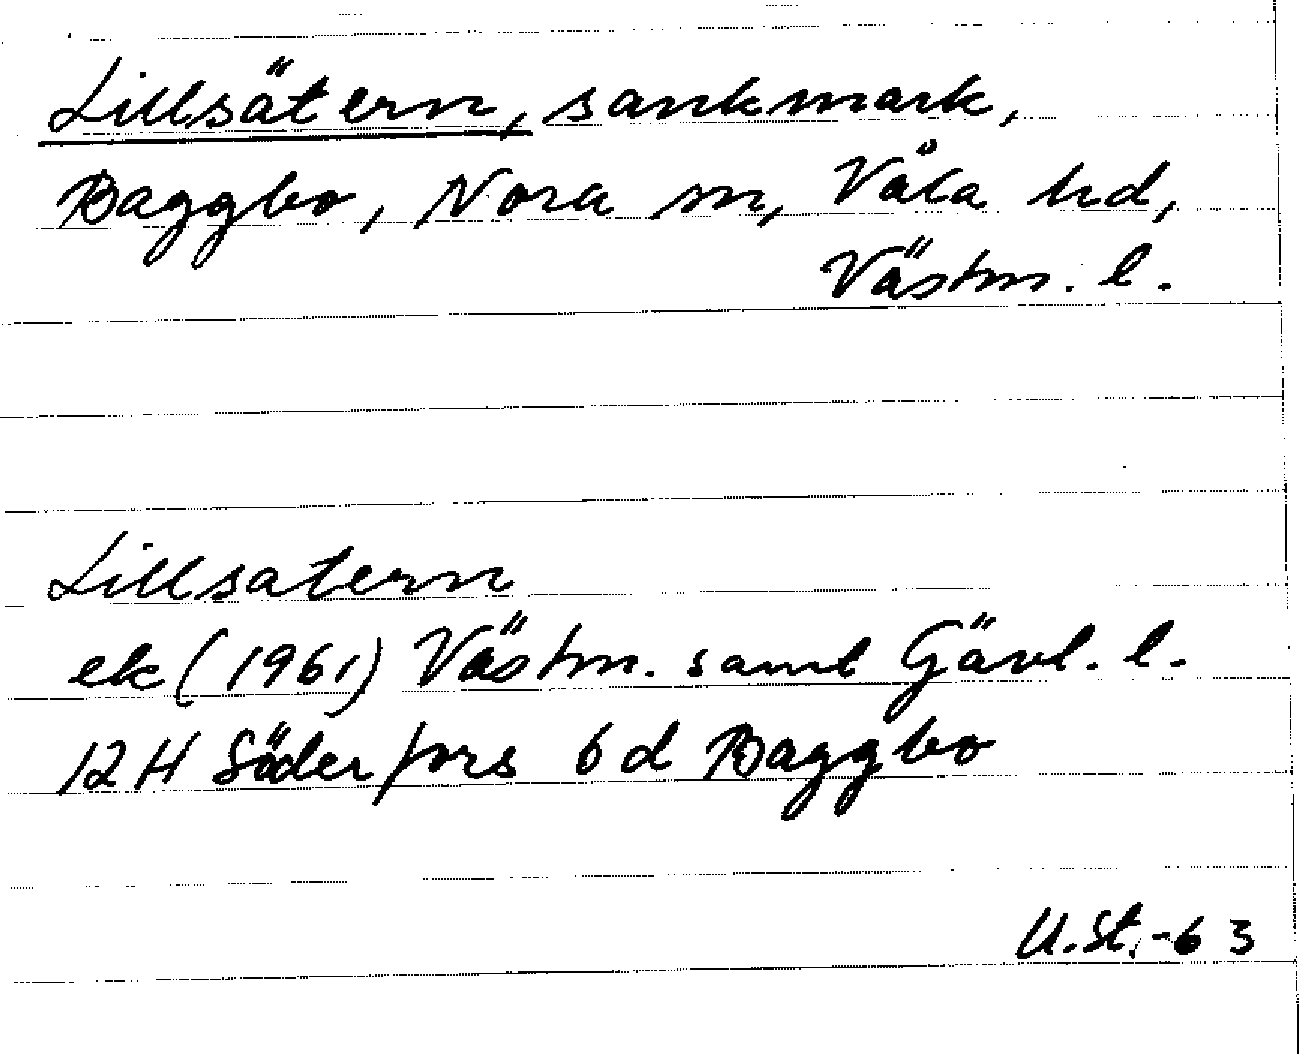 Lillsätern, sankmark,
Baggbo, Nora sn, Våla hd,
Västm. l.
Lillsatern
ek (1961) Västm. samt Gävl. l.
12 H Söderfors 6 d Baggbo
U.St.-63